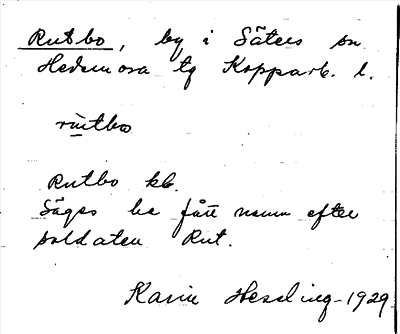 Rutbo, by i Säters sn
Hedemora tg Kopparb. l.
rùtbo
Rutbo kb.
Säges ha fått namn efter
soldaten Rut.
Karin Hessling 1929